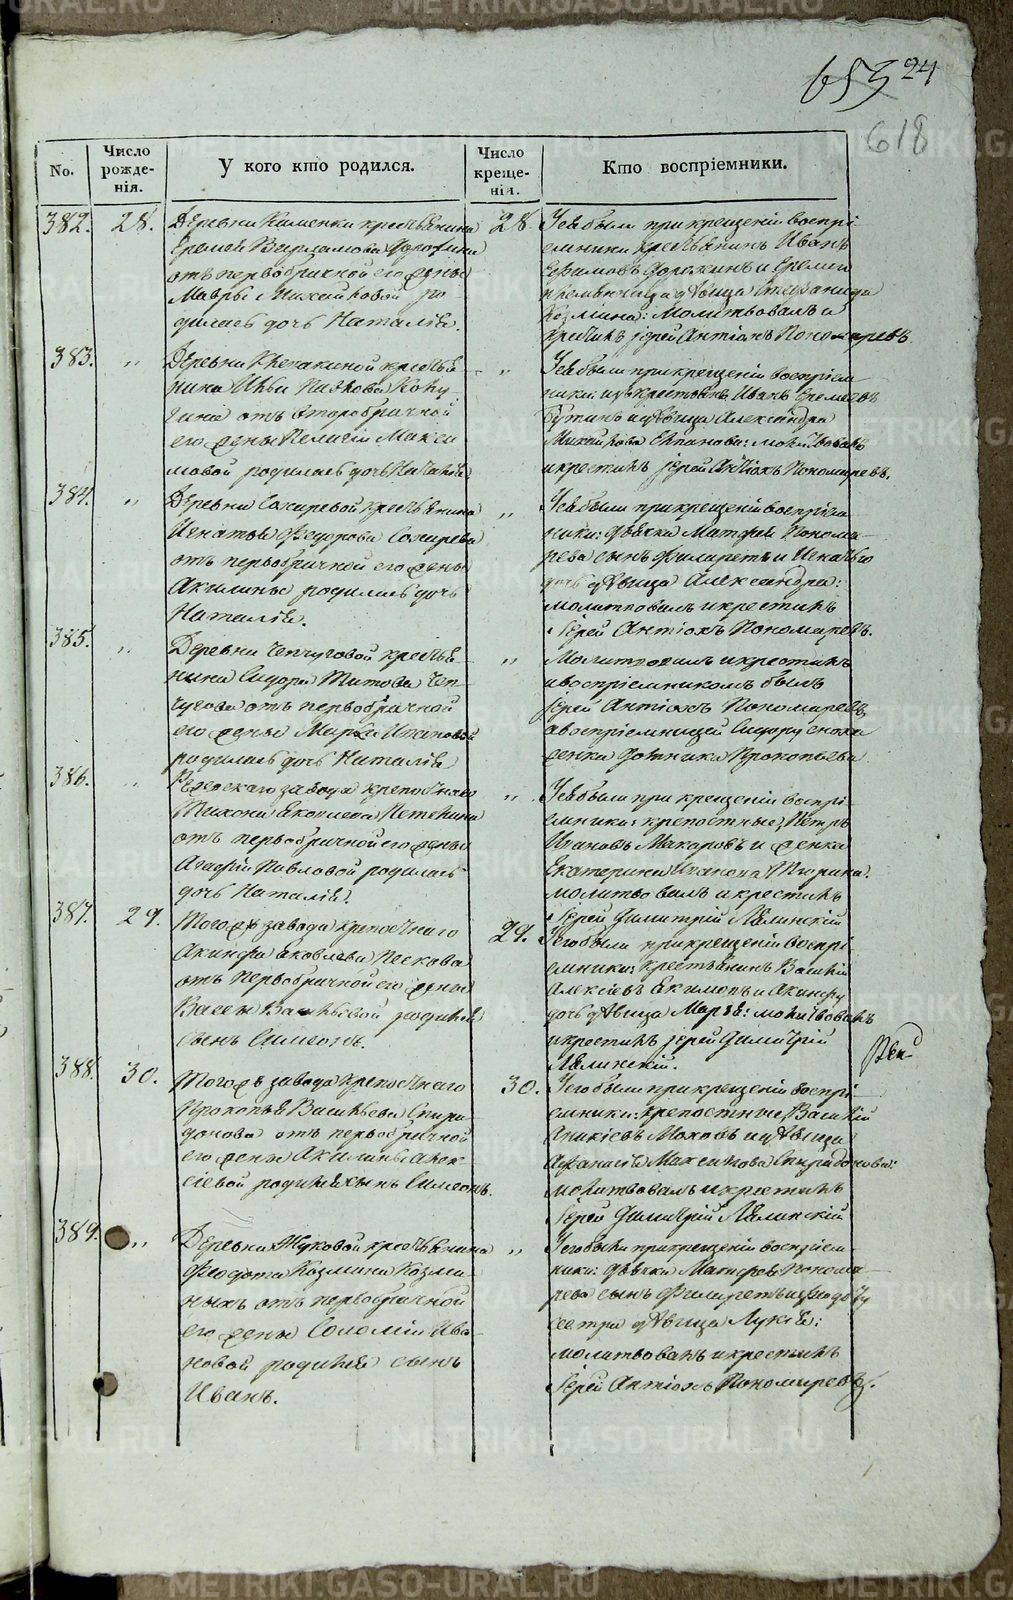 METRIKI.GASO-URAL.RU
653 24
618
No.
Число рожденія.
У кого кто родился.
Число крещенія.
Кто воспріемники.
382. 28.
Деревни Каменки крестьянина
Еремея
отъ первобрачной его жены
Мавры Михайловой ро-
дилась дочь Наталія.
28. У ея были при крещеніи воспрі-
емники: крестьянинъ Иванъ
Ефимовъ и Еремея
дѣвица Стефанида
Козмина: молитвовалъ и
крестилъ іерей Антіохъ Пономаревъ.
383. "
Деревни крестья-
нина Ильи
отъ второбрачной
его жены Пелагіи Макси-
мовой родилась дочь Наталія.
" У ея были при крещеніи воспріем-
ники: Иванъ Еремеевъ
и дѣвица Александра
Михайлова: молитвовалъ
и крестилъ іерей Антіохъ Пономаревъ.
384. "
Деревни Сохаревой крестьянина
Игнатія Федорова Сохарева
отъ первобрачной его жены
Акилины родилась дочь
Наталія.
" У ея были при крещеніи воспріем-
ники: дьячка Матфея Понома-
рева сынъ Филиретъ и Игнатьева
дочь дѣвица Александра:
молитвовалъ и крестилъ
іерей Антіохъ Пономаревъ.
385. "
Деревни Чепчуговой крестья-
нина Сидора Титова Чеп-
чугова отъ первобрачной
его жены
родилась дочь Наталія
" Молитвовалъ и крестилъ
и воспріемникомъ былъ
іерей Антіохъ Пономаревъ,
а воспріемницей Сидору
женка Прокопьева
386. "
Режевскаго завода крепостнаго
Тихона Яковлева
отъ первобрачной его жены
Агафіи Павловой родилась
дочь Наталія.
" У ея были при крещеніи воспрі-
емники: крепостные, Петръ
Ивановъ Макаровъ и женка
Екатерина Иванова
молитвовалъ и крестилъ
іерей Димитрій
387. 29.
Того жъ завода крепостнаго
Акинфа Яковлева Пескова
отъ первобрачной его жены
Васильевой родился
сынъ Симеонъ.
29. У его были при крещеніи воспрі-
емники: крестьянинъ Василій
Алексѣевъ Екимовъ и Акинфу
дочь дѣвица Марѳа: молитвовалъ
и крестилъ іерей Димитрій
388. 30.
Того жъ завода крепостнаго
Прокопья Васильева Спири-
донова отъ первобрачной
его жены Акилины Алек-
сіевой родился сынъ Симеонъ.
30. У его были при крещеніи воспрі-
емники: крепостные, Василій
Аникіевъ Моховъ и дѣвица
Афанасія Максимова Спиридонова:
молитвовалъ и крестилъ
іерей Димитрій
389. "
Деревни Жуковой крестьянина
Феодота Козмина Козми-
ныхъ отъ первобрачной
его жены Соломіи Ива-
новой родился сынъ
Иванъ.
" У его были при крещеніи воспріем-
ники: дьячка Матфея Понома-
рева сынъ Филиретъ и Феодоту
сестра дѣвица Лукія:
молитвовалъ и крестилъ
іерей Антіохъ Пономаревъ.
METRIKI.GASO-URAL.RU